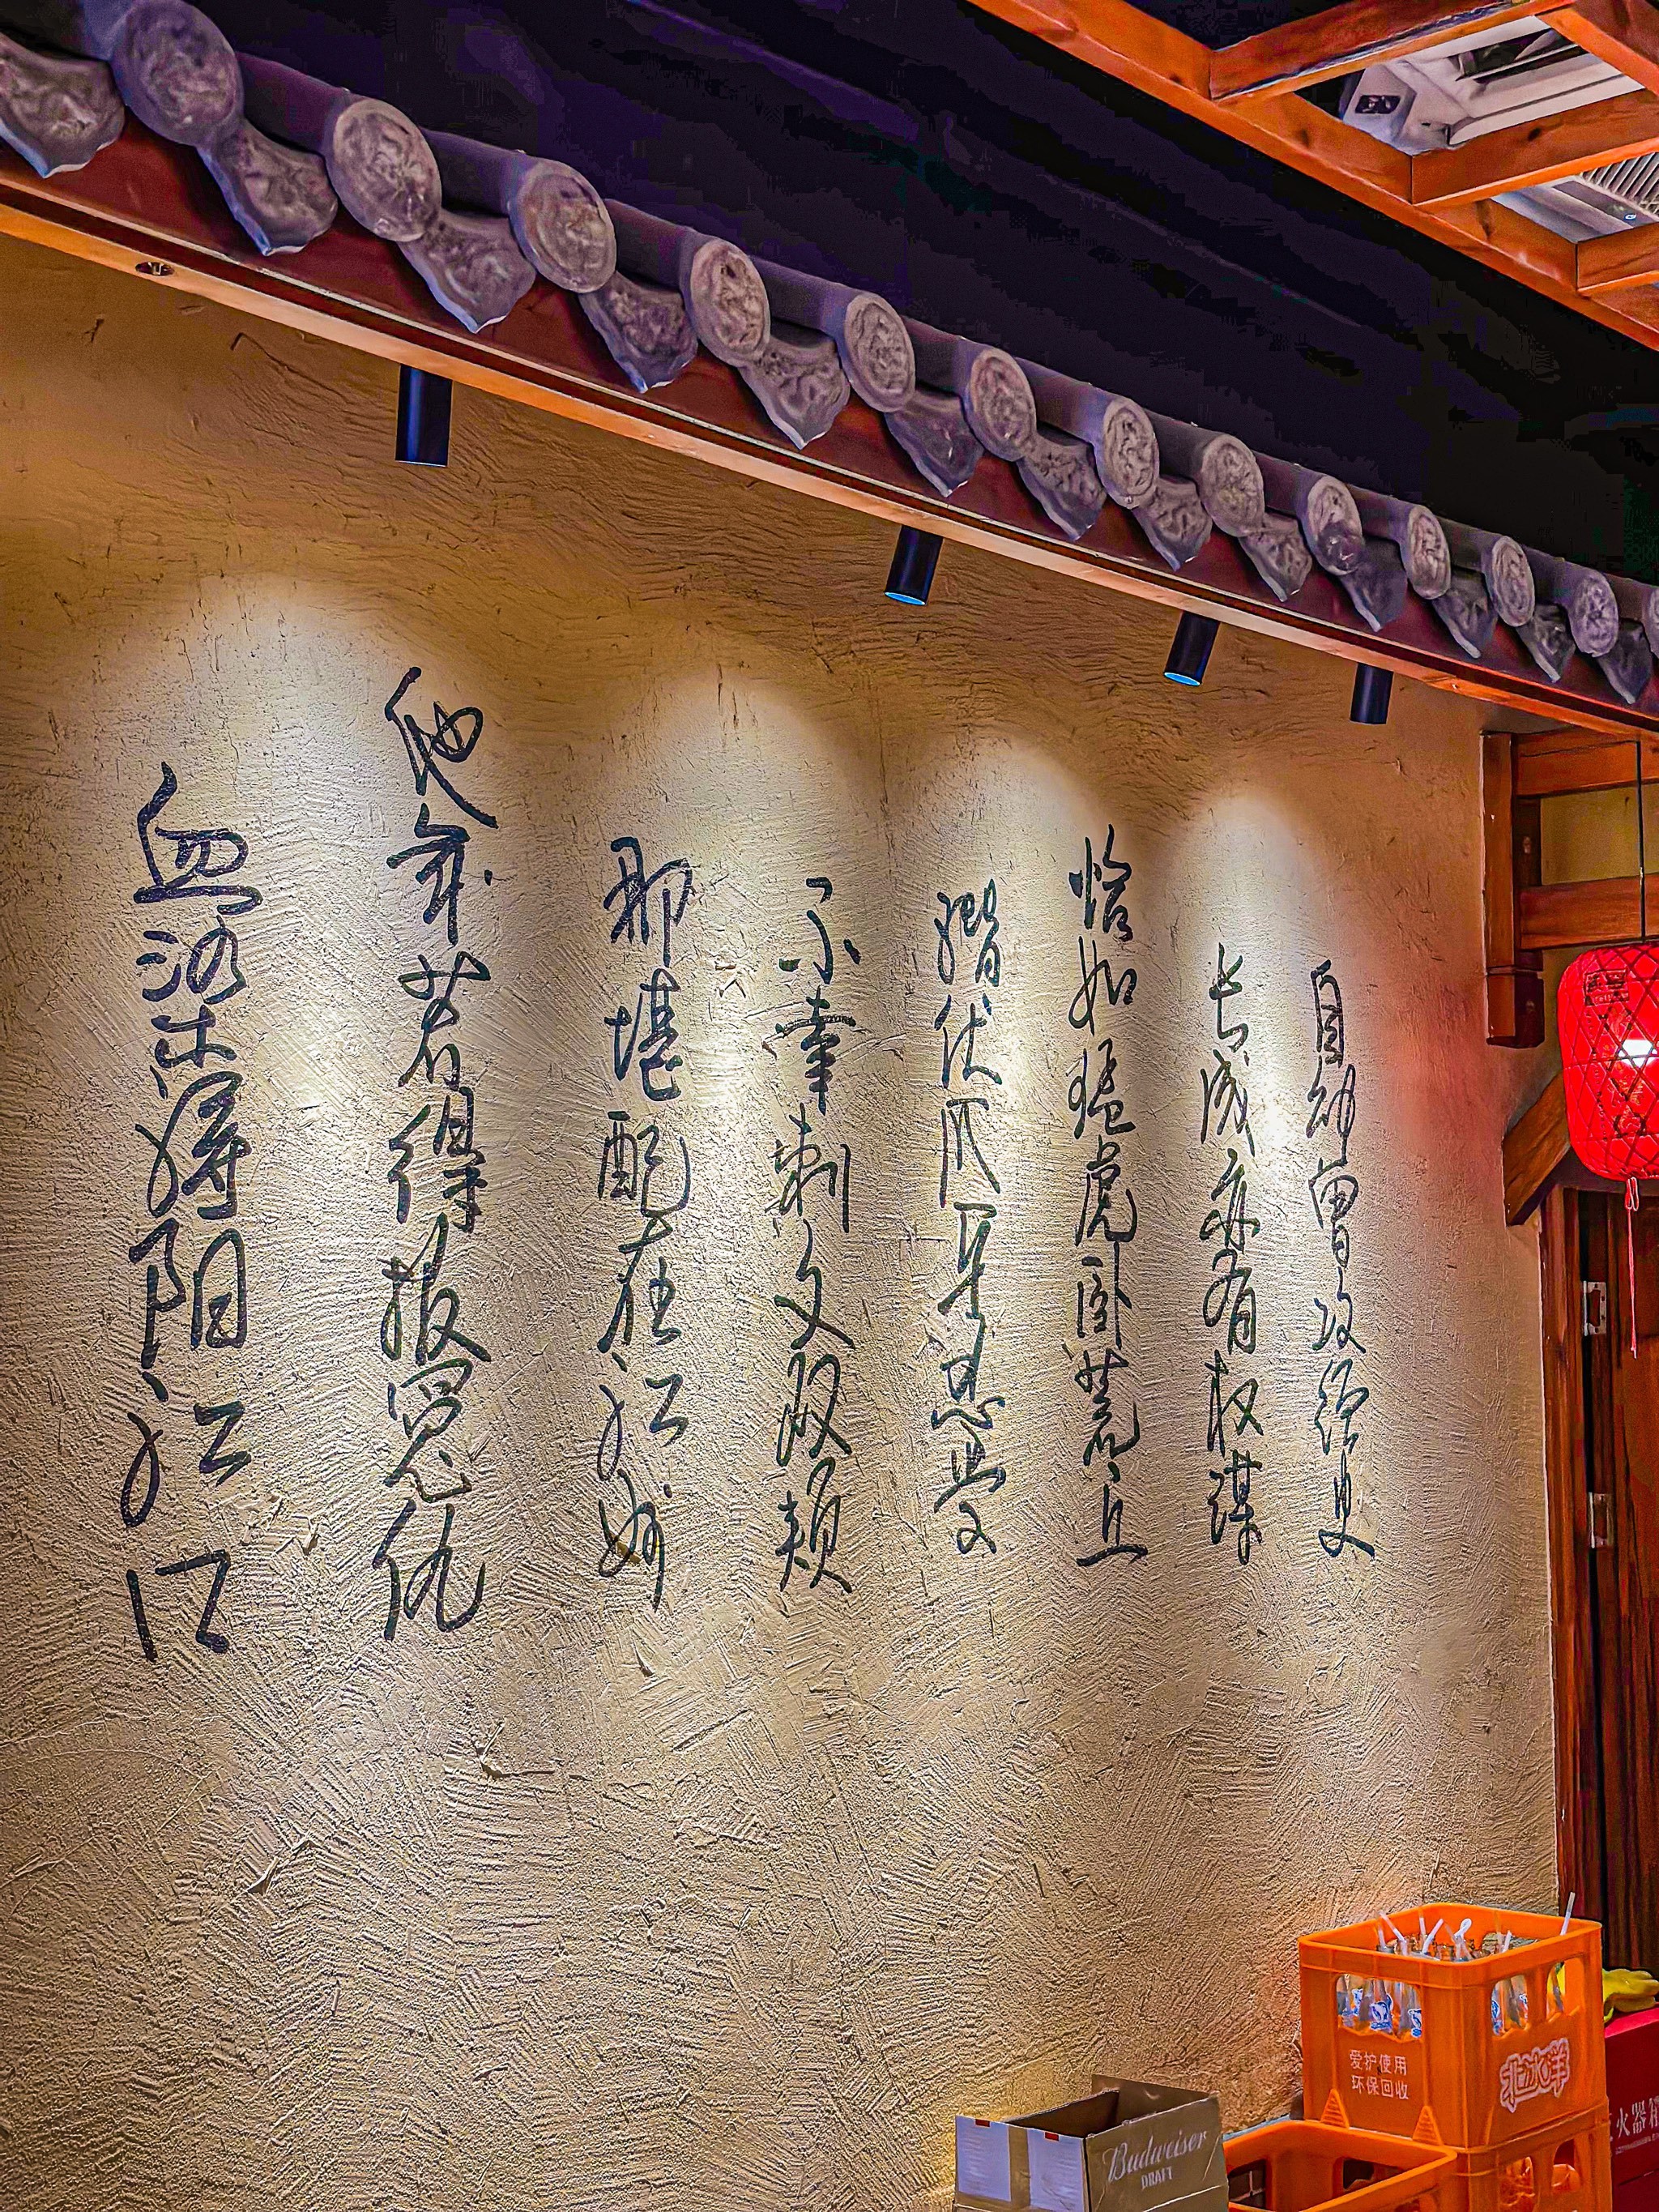 自幼曾攻经史
长成亦有权谋
恰如猛虎卧荒丘
潜伏爪牙忍受
不幸刺文双颊
那堪配在江州
他年若得报冤仇
血染浔阳江口
爱护使用
环保回收
北冰洋
Budweiser
DRAFT
火器箱